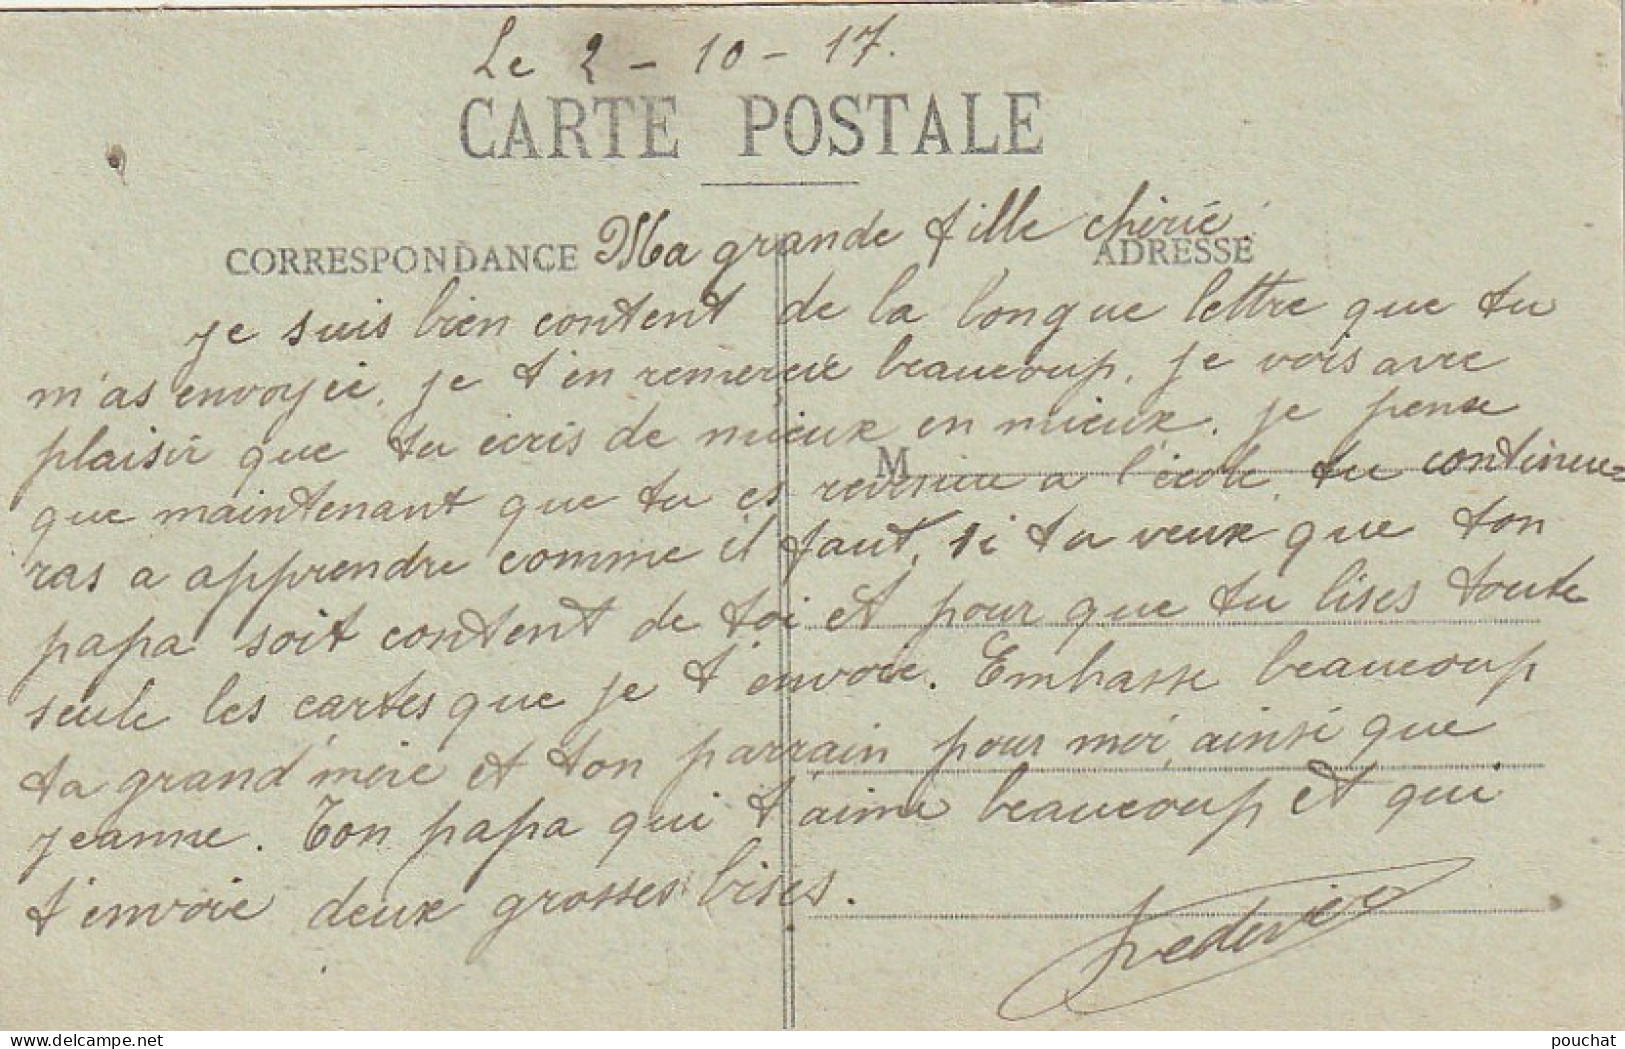 Le 2 - 10 - 17.
CARTE POSTALE
CORRESPONDANCE
ADRESSE
Ma grande fille chérie.
je suis bien content de la longue lettre que tu
m'as envoyée. je t'en remercie beaucoup. je vois avec
plaisir que tu écris de mieux en mieux. je pense
M
que maintenant que tu es revenue a l'école, tu continue=
ras a apprendre comme il faut, si tu veux que ton
papa soit content de toi et pour que tu lises toute
seule les cartes que je t'envoie. Embrasse beaucoup
ta grand'mère et ton parrain pour moi, ainsi que
jeanne. Ton papa qui t'aime beaucoup et qui
t'envoie deux grosses bises.
delcampe.net
pouchat